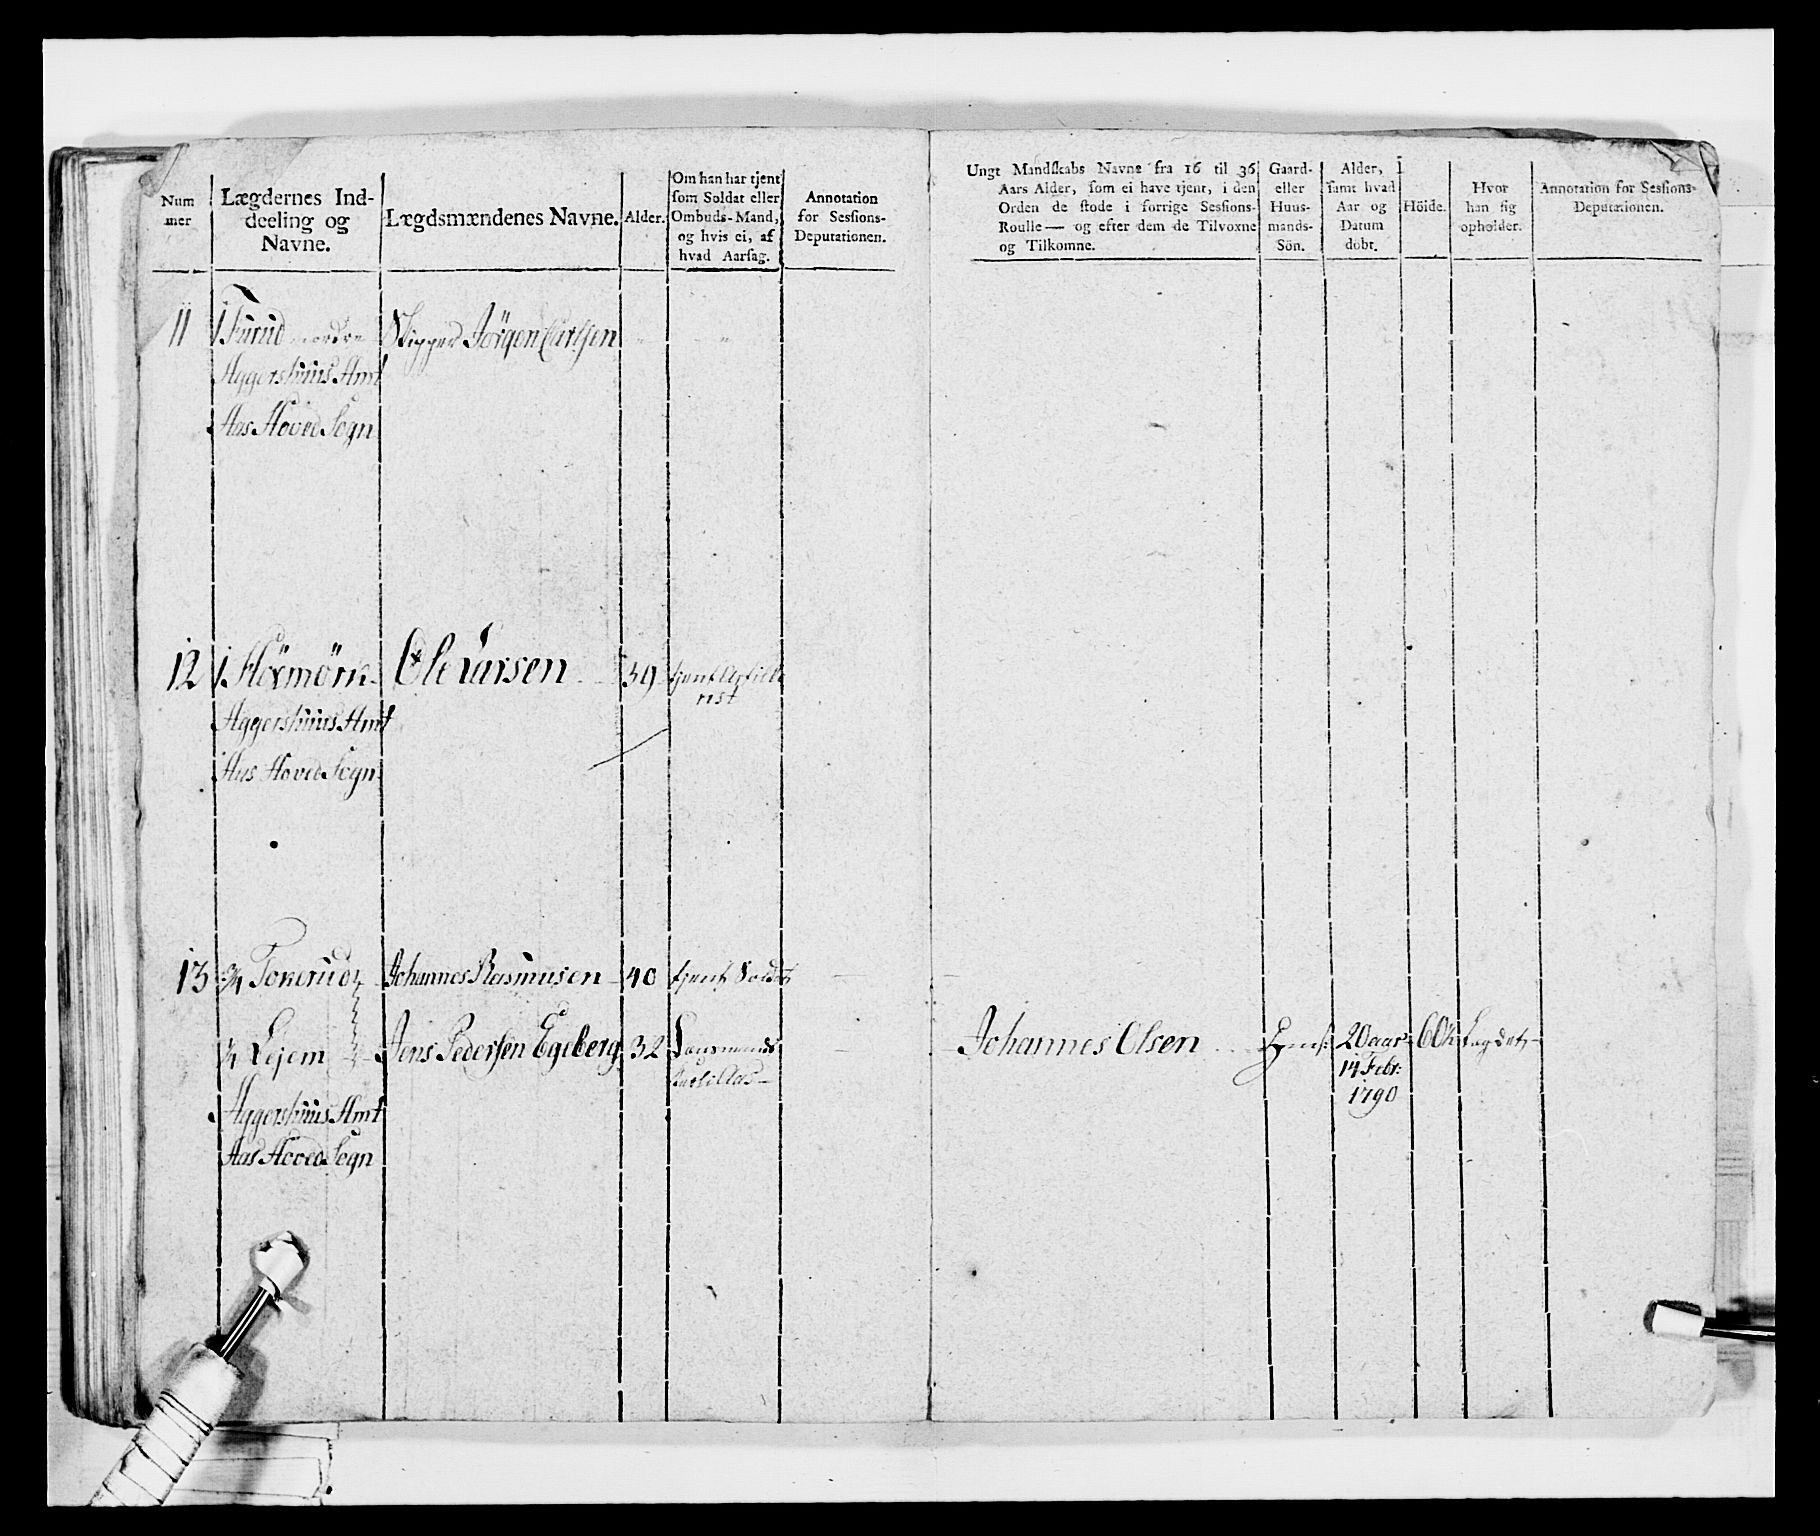 Num
mer
Lægdernes Ind-
deeling og
Navne.
Lægdsmændenes Navne.
Alder.
Om han har tjent
som Soldat eller
Ombuds-Mand,
og hvis ei, af
hvad Aarsag.
Annotation
for Sessions-
Deputationen.
Ungt Mandskabs Navne fra 16 til 36
Aars Alder, som ei have tjent, i den
Orden de stode i forrige Sessions-
Roulle — og efter dem de Tilvoxne
og Tilkomne.
Gaard-
eller
Huus-
mands-
Sön.
Alder,
samt hvad
Aar og
Datum
döbt.
Höide.
Hvor
han sig
opholder.
Annotation for Sessions-
Deputationen.
11 1 Furud nordre Skipper Jörgen Carlsen
Aggershuus Amt
Aas Hoved Sogn
12 1 Ole Larsen 39 tjent Artille
rist
Aggershuus Amt
Aas Hoved Sogn
13 3/4 Tokerud Johannes Rasmusen 40 tjent Soldat
1/4 Lejem Jens Pedersen Egeberg 32 Johannes Olsen 20 aar 60 1/2 Lægdet
14 Febr:
1790
Aggershuus Amt
Aas Hoved Sogn